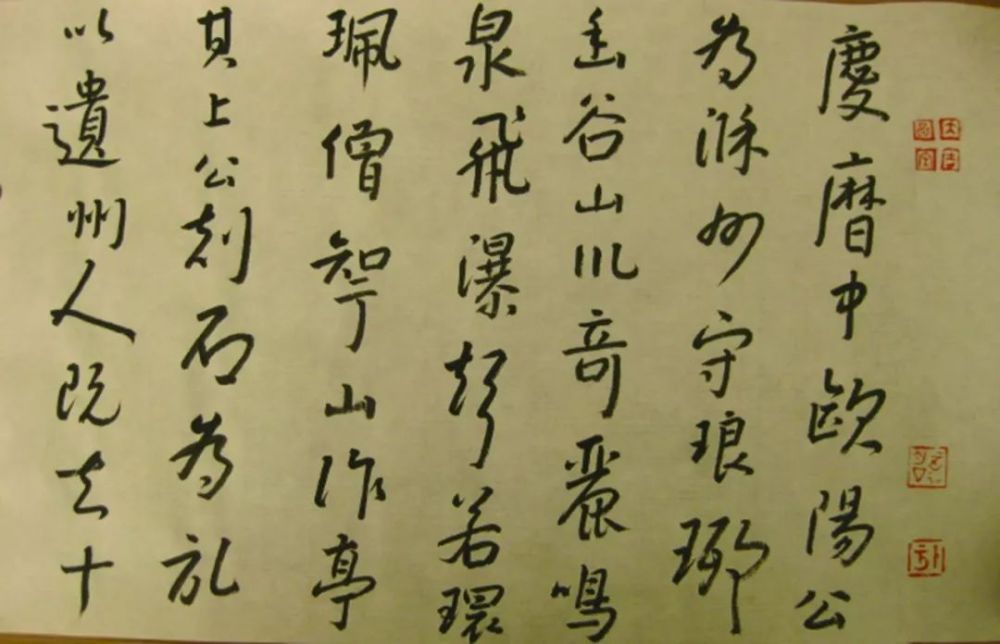 慶曆中歐陽公
為滁州守琅琊
幽谷山川奇麗鳴
泉飛瀑聲若環
珮僧智山作亭
其上公刻石為記
以遺州人既去十